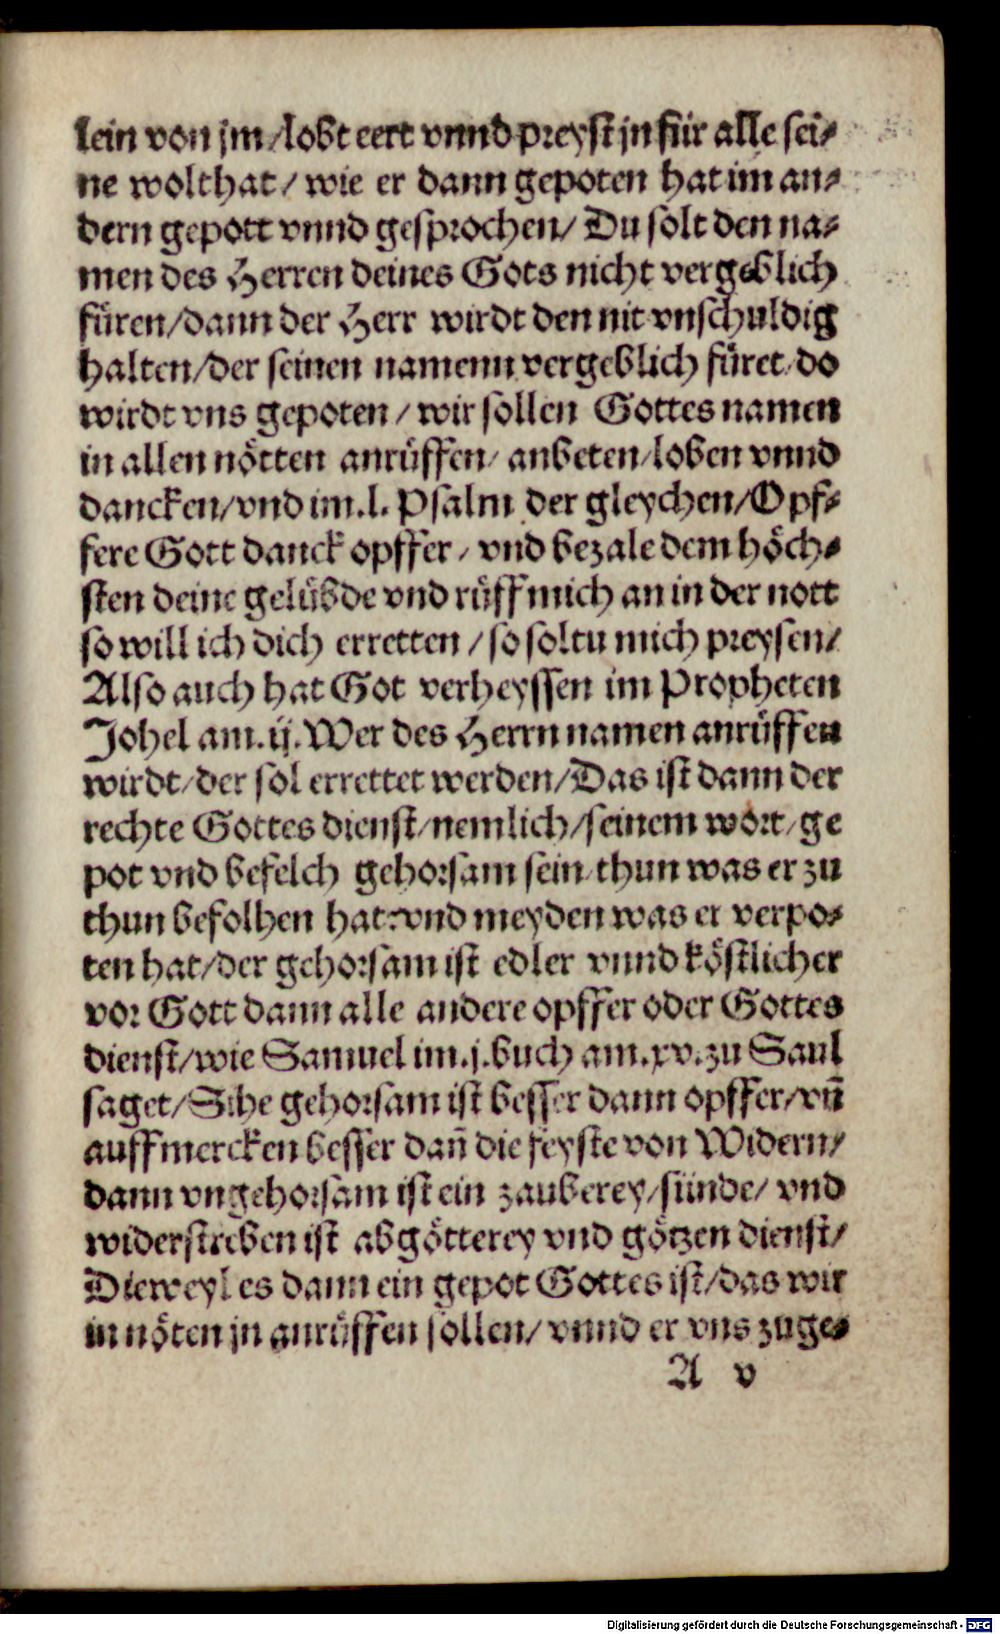 lein von jm / lobt eert vnnd preyst jn für alle sei⸗
ne wolthat / wie er dann gepoten hat im an⸗
dern gepott vnnd gesprochen / Du solt den na⸗
men des Herren deines Gots nicht vergeblich
füren / dann der Herr wirdt den nit vnschuldig
halten / der seinen namenn vergeblich füret / do
wirdt vns gepoten / wir sollen Gottes namen
in allen nötten anrüffen / anbeten / loben vnnd
dancken / vnd im .l. Psalm der gleychen / Opf⸗
fere Gott danck opffer / vnd bezale dem höch⸗
sten deine gelübde vnd rüff mich an in der nott
so will ich dich erretten / so soltu mich preysen /
Also auch hat Got verheyssen im Propheten
Johel am .ij. Wer des Herrn namen anrüffen
wirdt / der sol errettet werden / Das ist dann der
rechte Gottes dienst / nemlich / seinem wort / ge
pot vnd befelch gehorsam sein / thun was er zu
thun befolhen hat: vnd meyden was er verpo⸗
ten hat / der gehorsam ist edler vnnd köstlicher
vor Gott dann alle andere opffer oder Gottes
dienst / wie Samuel im .j. buch am .xv. zu Saul
saget / Sihe gehorsam ist besser dann opffer / vñ
auffmercken besser dañ die feyste von Widern /
dann vngehorsam ist ein zauberey / sünde / vnd
widerstreben ist abgötterey vnd götzen dienst /
Dieweyl es dann ein gepot Gottes ist / das wir
in nöten jn anrüffen sollen / vnnd er vns zuge⸗
A v
Digitalisierung gefördert durch die Deutsche Forschungsgemeinschaft - DFG